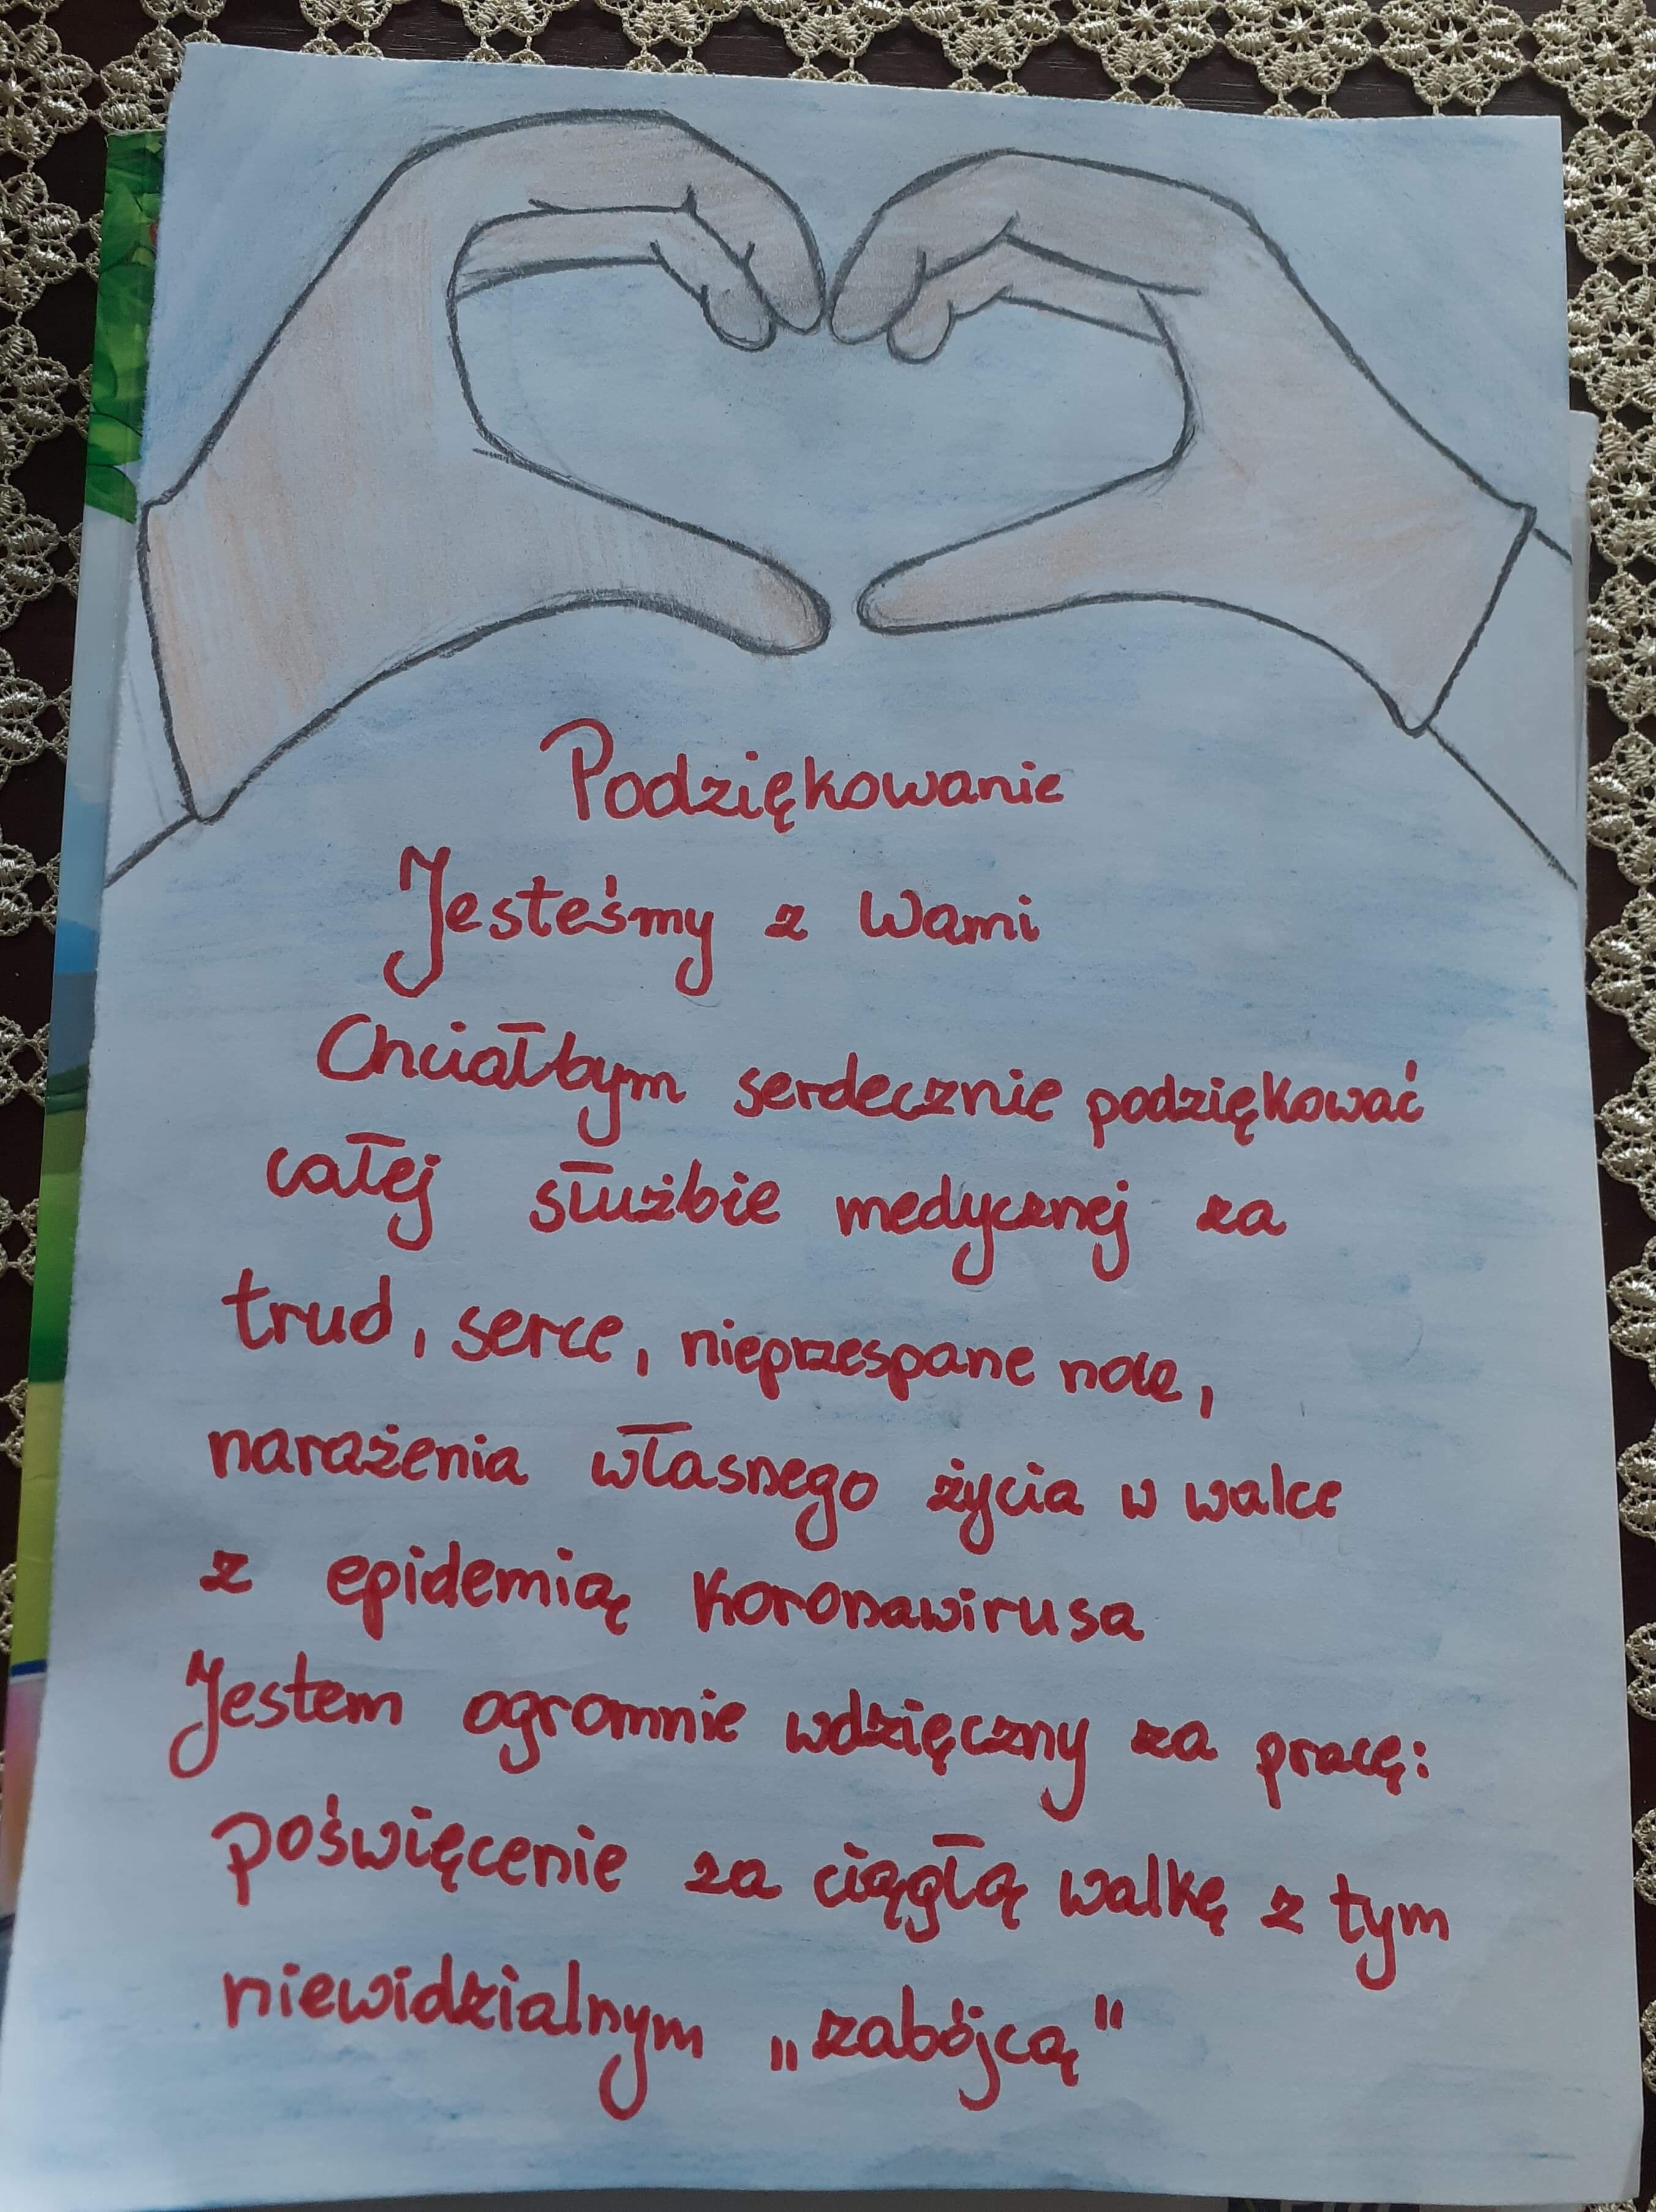 Podziękowanie
Jesteśmy z Wami
Chciałbym serdecznie podziękować
całej służbie medycznej za
trud, serce, nieprzespane noce,
narażenia własnego życia w walce
z epidemią koronawirusa
Jestem ogromnie wdzięczny za pracę:
poświęcenie za ciągłą walkę z tym
niewidzialnym „zabójcą"